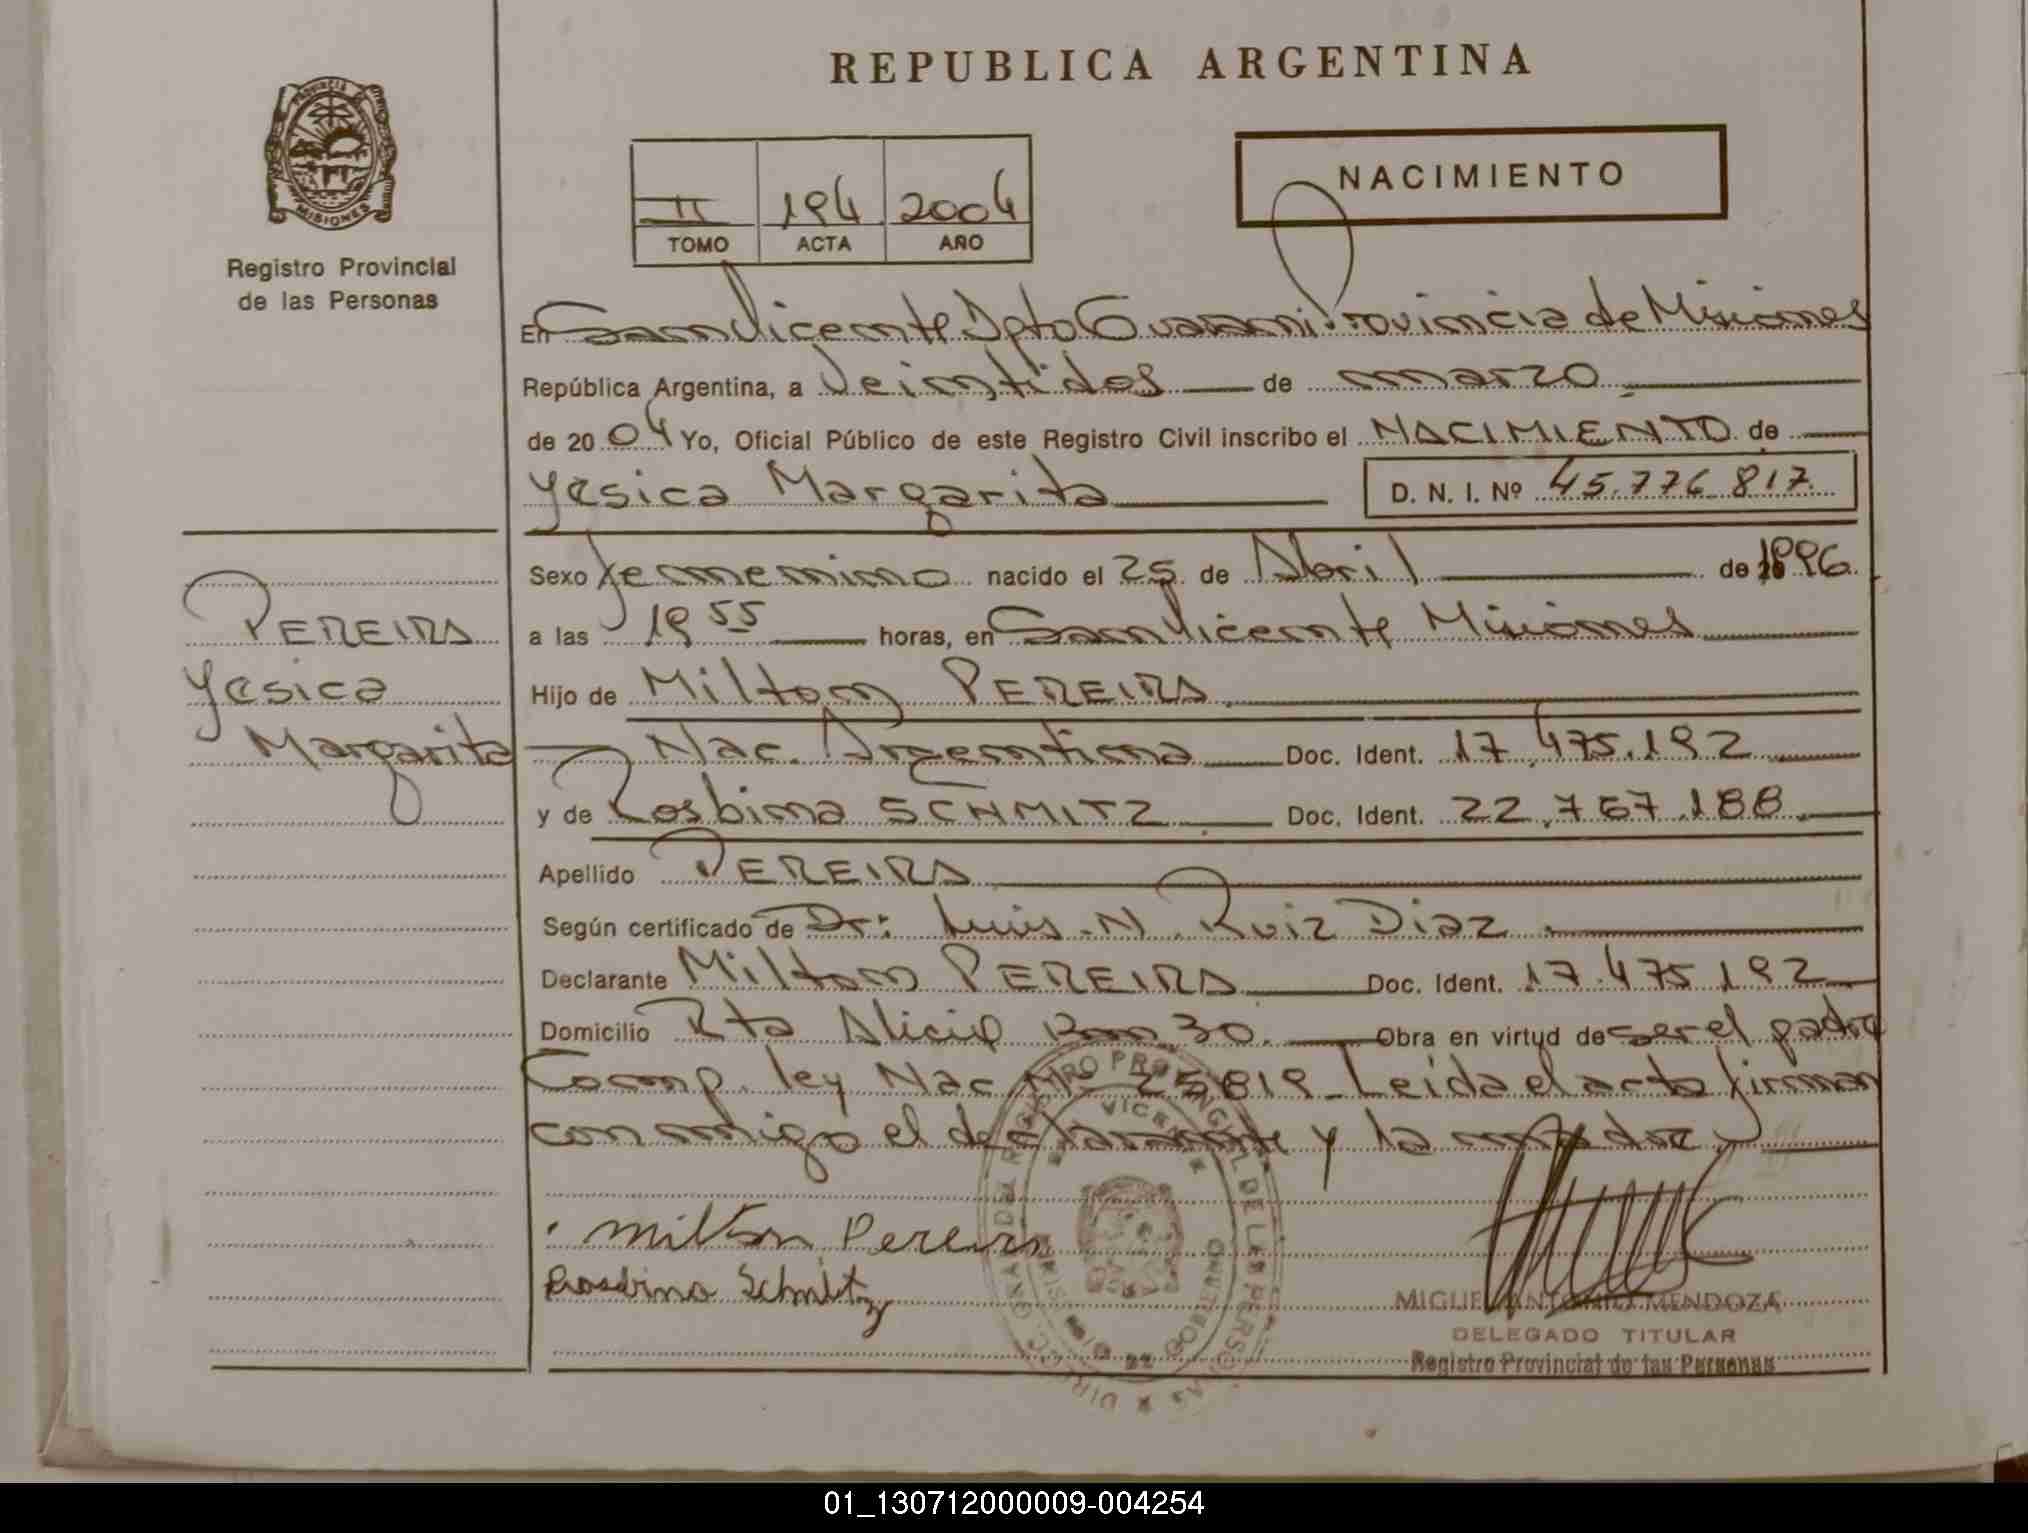 REPUBLICA ARGENTINA
PROVINCIA DE
MISIONES
Registro Provincial
de las Personas
II 194 2004
TOMO ACTA AÑO
NACIMIENTO
En San Vicente Dpto Guarani Provincia de Misiones
República Argentina, a Veintidos de marzo
de 2004 Yo, Oficial Público de este Registro Civil inscribo el NACIMIENTO de
Yesica Margarita D. N. I. Nº 45.776.817
PEREIRA
Yesica
Margarita
Sexo femenino nacido el 25 de Abril de 1996
a las 19 55 horas, en San Vicente Misiones
Hijo de Milton PEREIRA
Nac. Argentina Doc. Ident. 17.475.192
y de Rosbina SCHMITZ Doc. Ident. 22.767.188
Apellido PEREIRA
Según certificado de Dr: Luis N. Ruiz Diaz
Declarante Milton PEREIRA Doc. Ident. 17.475.192
Domicilio Rta Alicia Km 30. Obra en virtud de ser el padre
Comp. ley Nac Nº 25819 - Leida el acta firman
conmigo el declarante y la madre
Milton Pereira
Rosbina Schmitz
MIGUEL ANTONIO MENDOZA
DELEGADO TITULAR
Registro Provincial de las Personas
01_130712000009-004254